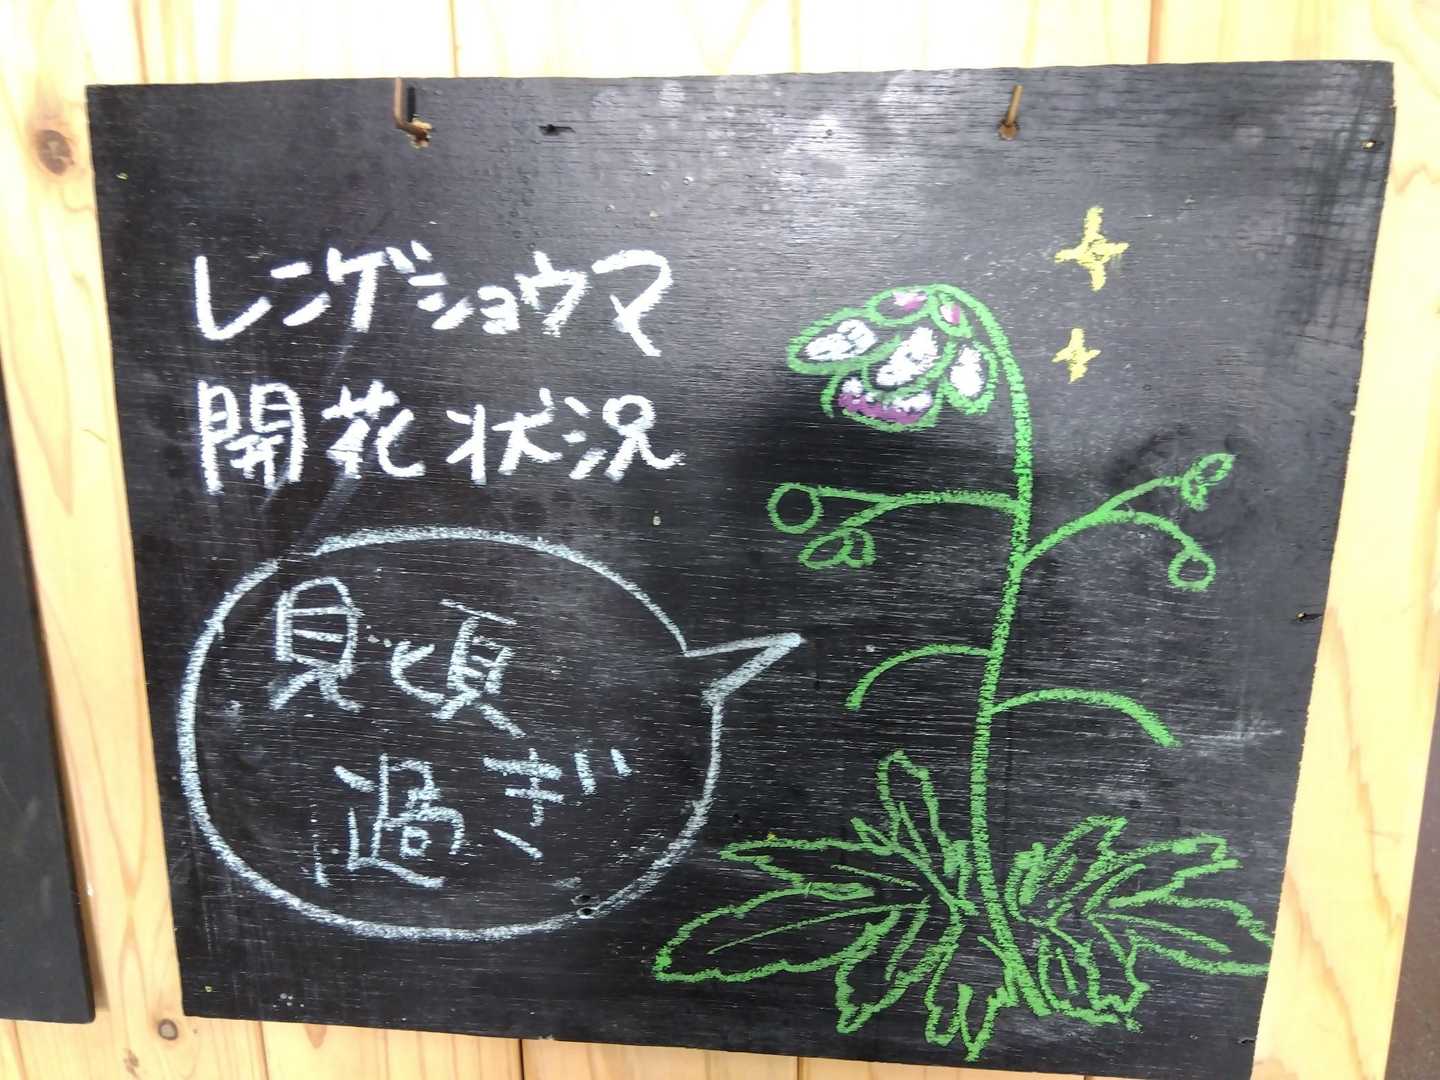 レンゲショウマ
開花状況
見頃
過ぎ